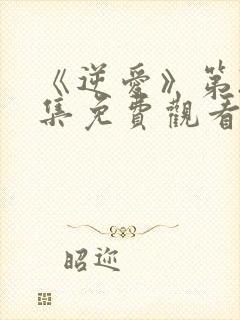 《逆愛》第
集免費觀看
昭迩